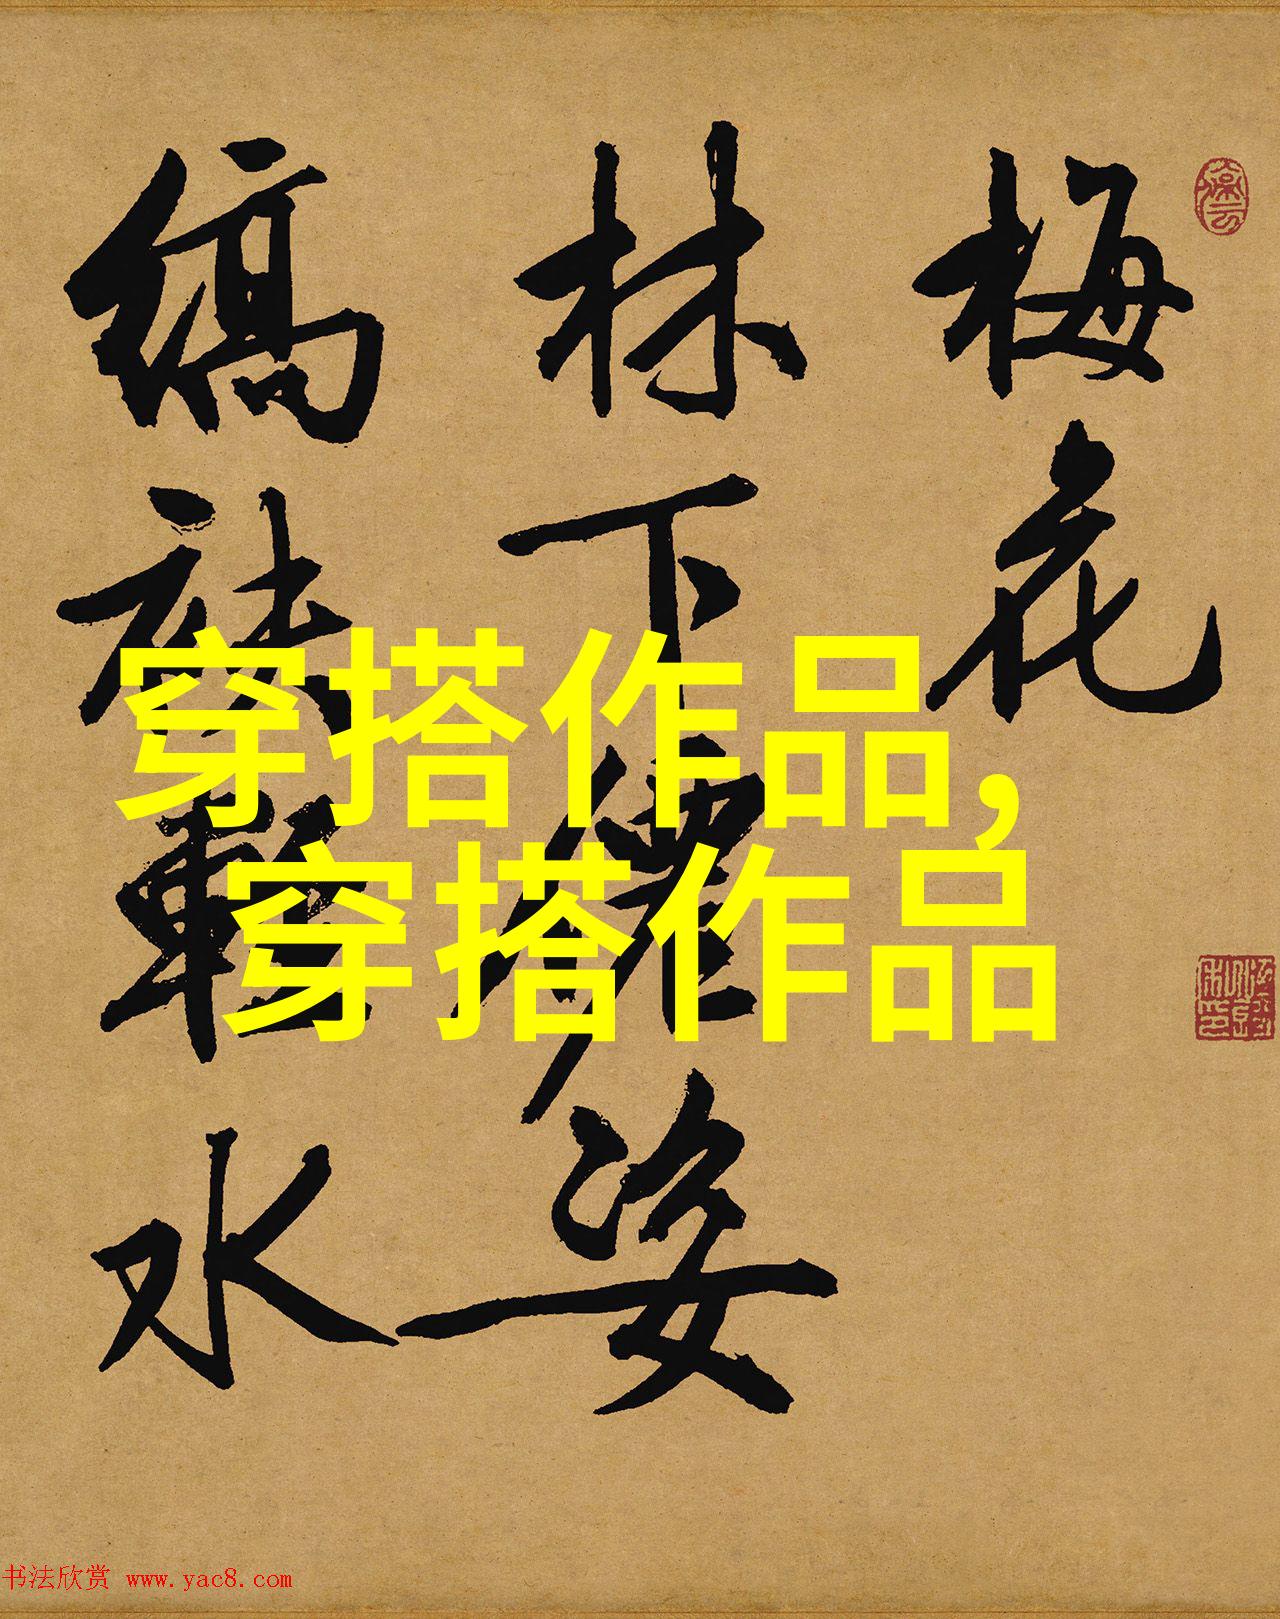 梅花
林下僊姿
縞袂輕水
穿搭作品,
穿搭作品
书法欣赏 www.yac8.com